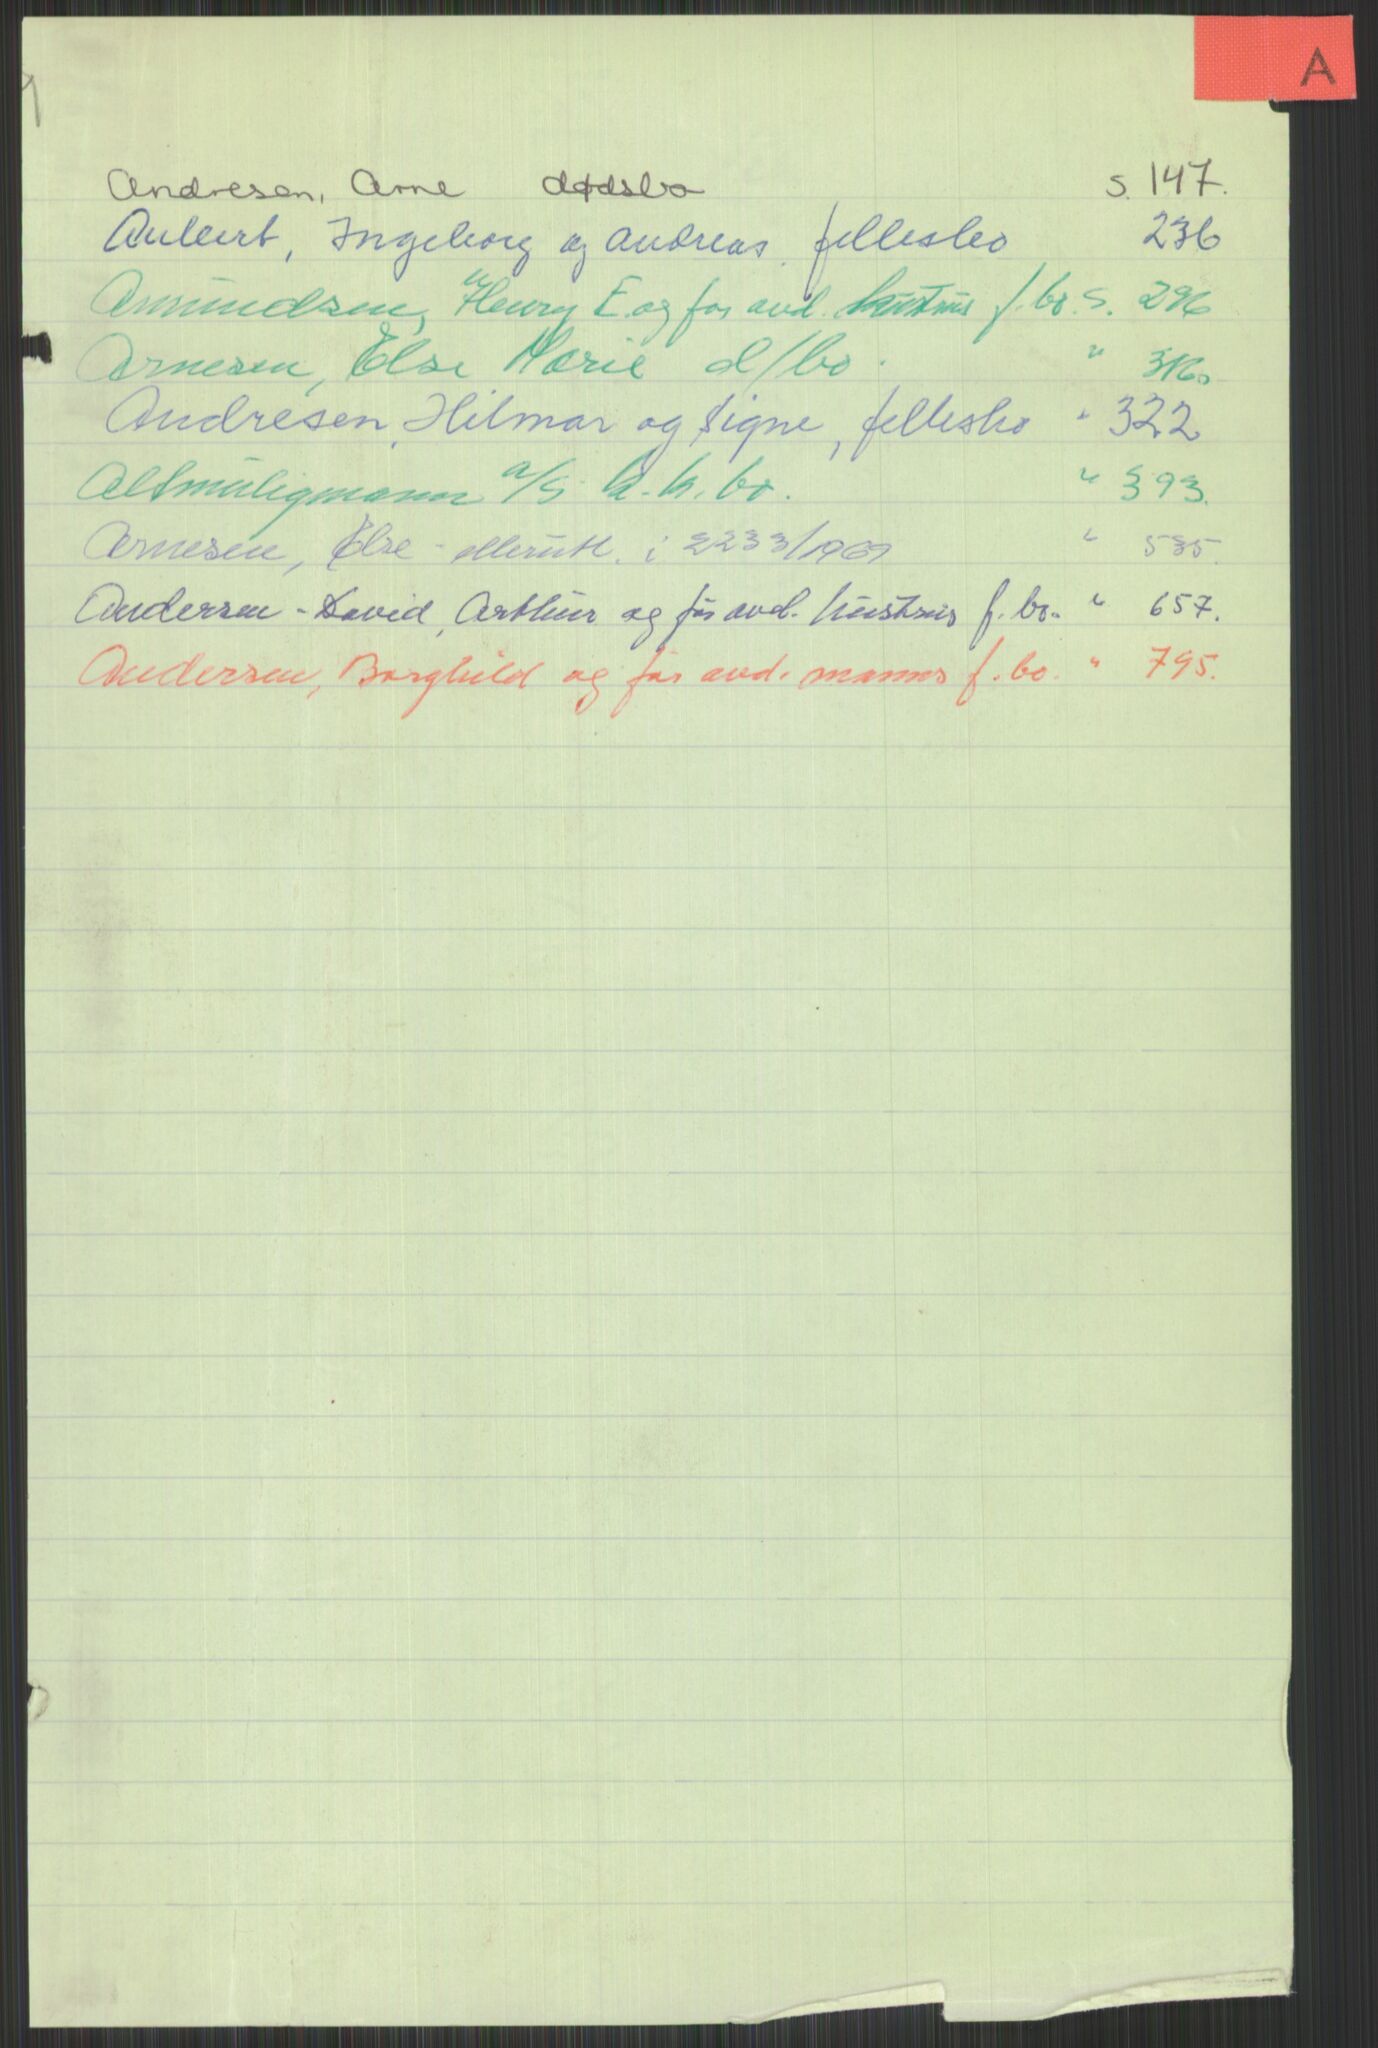 A
Andresen, Arne dødsbo s. 147.
Aubert, Ingeborg og Andreas, fellesbo 236
Amundsen, Henry E og før avd. hustrus f. bo. S. 296
Arnesen, Else Marie d/bo. " 316.
Andresen, Hilmar og Signe, fellesbo " 322
Altmuligmann a/s k.k. bo. " 393.
Arnesen, Else - etterutl. i 2233/1969 " 535.
Andersen - David, Arthur og før avd. hustrus f. bo. " 657.
Andersen, Borghild og før avd. manns f. bo. " 795.